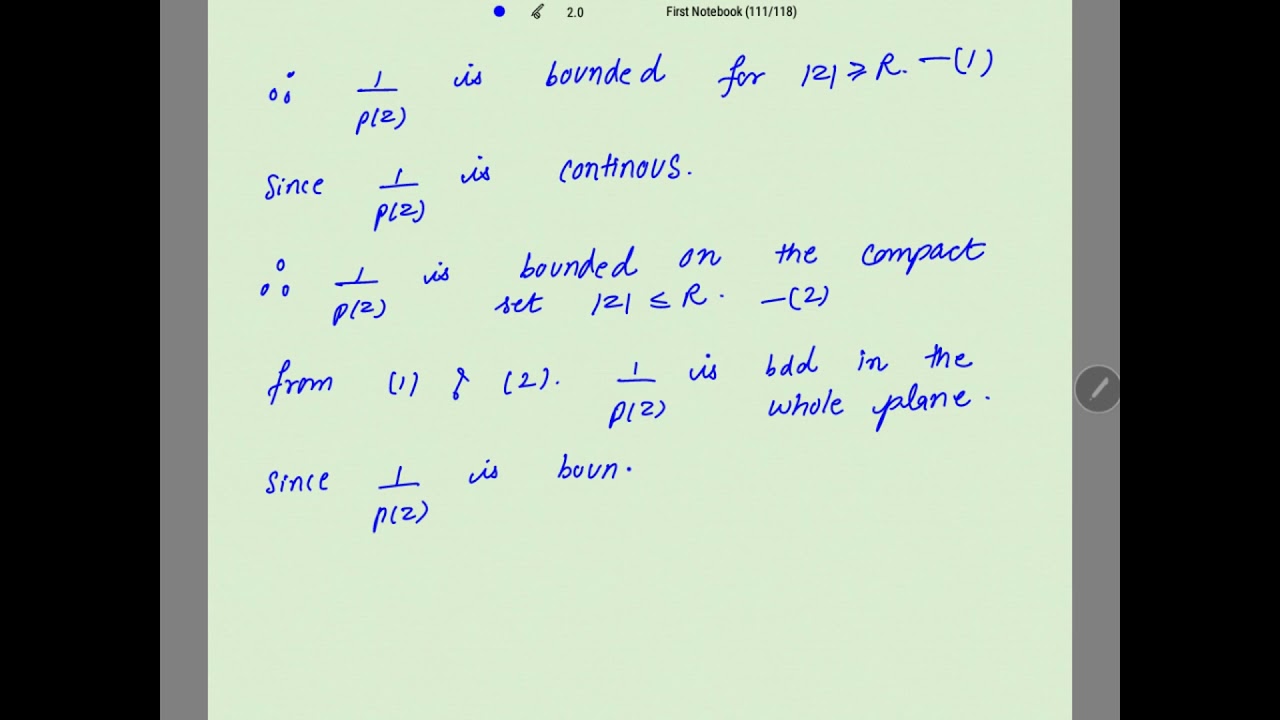 2.0 First Notebook (111/118)
∴ 1/p(z) is bounded for |z| ⩾ R. —(1)
Since 1/p(z) is continous.
∴ 1/p(z) is bounded on the compact
set |z| ≤ R. —(2)
from (1) & (2). 1/p(z) is bdd in the
whole plane.
Since 1/p(z) is boun.